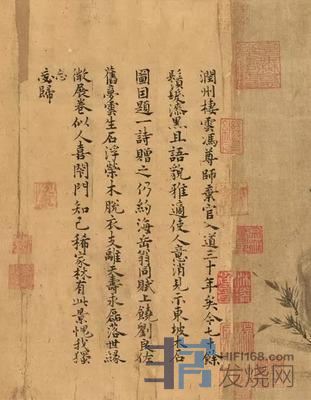 潤州棲雲馮尊師棄官入道三十年矣今七十餘
鬚髮漆黑且語貌雅適使人意消見示東坡木石
圖因題一詩贈之仍約海岳翁同賦上饒劉良佐
舊夢雲生石浮榮木脫衣支離天壽永磊落世緣
微展卷似人喜閉門知己稀家林有此景愧我獨
忘歸
HIFI168.com
发烧网